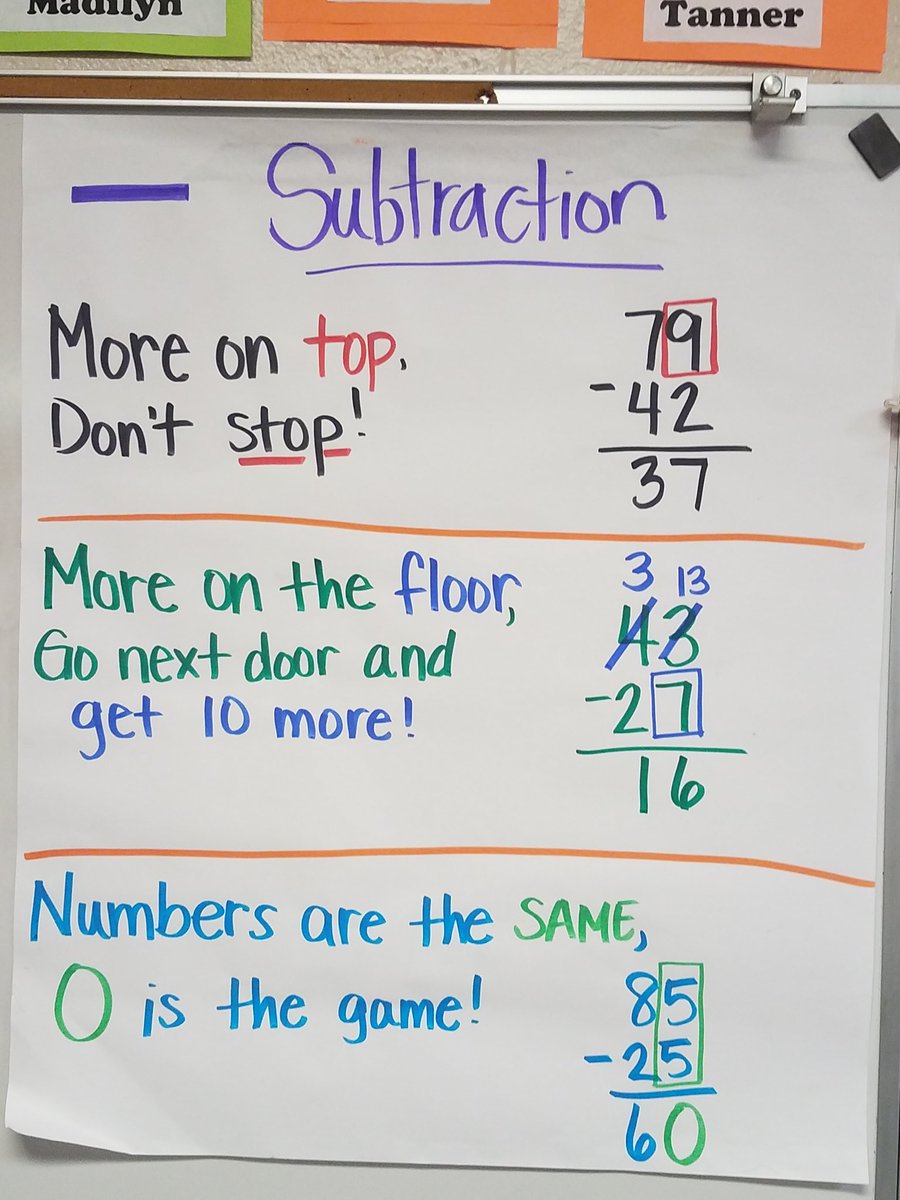 Madilyn
Tanner
— Subtraction
More on top.
Don't stop!
79
-42
37
More on the floor,
Go next door and
get 10 more!
3 13
43
-27
16
Numbers are the SAME,
0 is the game!
85
-25
60